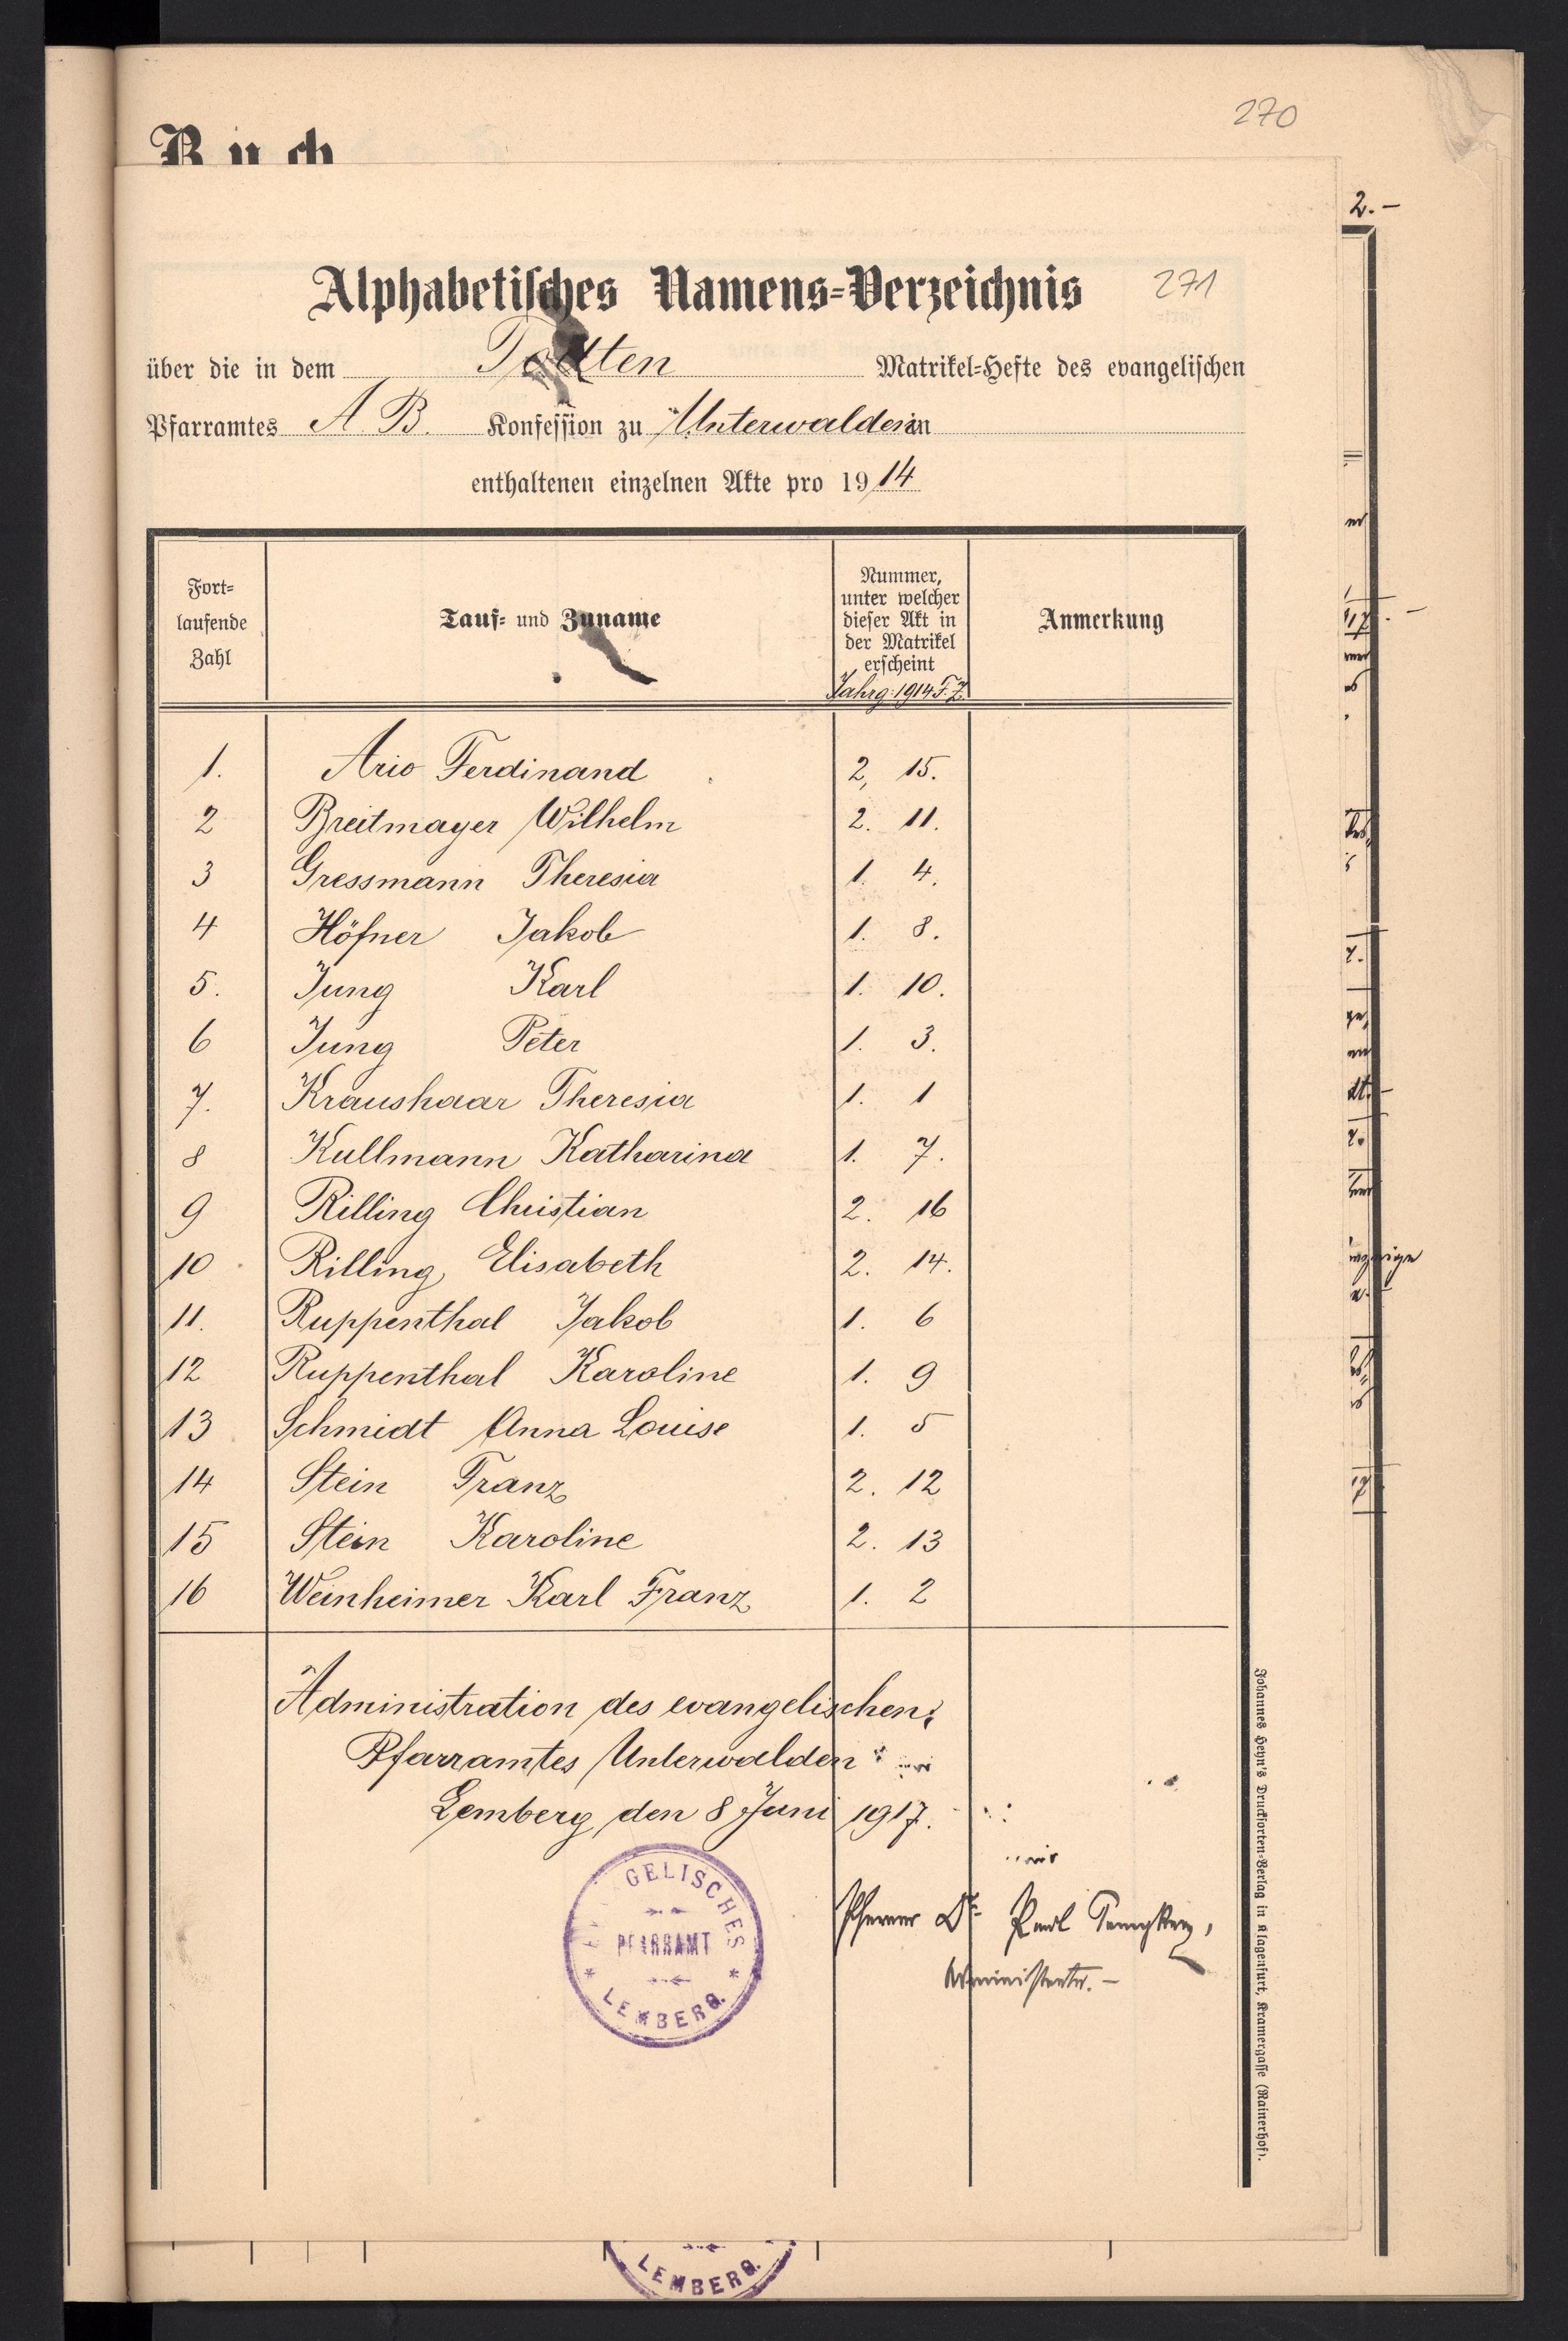 270
Buch
2.-
Alphabetisches Namens-Verzeichnis 271
über die in dem Todten Matrikel-Hefte des evangelischen
Pfarramtes A B. Konfession zu Unterwalden in
enthaltenen einzelnen Akte pro 1914
Fort-
laufende
Zahl
Tauf- und Zuname
Nummer,
unter welcher
dieser Akt in
der Matrikel
erscheint
Jahrg: 1914 F. Z.
Anmerkung
1. Ario Ferdinand 2, 15.
2 Breitmayer Wilhelm 2. 11.
3 Gressmann Theresia 1. 4.
4 Höfner Jakob 1. 8.
5. Jung Karl 1. 10.
6 Jung Peter 1. 3.
7. Kraushaar Theresia 1. 1
8 Kullmann Katharina 1. 7.
9 Rilling Christian 2. 16
10 Rilling, Elisabeth 2. 14.
11. Ruppenthal Jakob 1. 6
12 Ruppenthal Karoline 1. 9
13 Schmidt Anna Louise 1. 5
14 Stein Franz 2. 12
15 Stein Karoline 2. 13
16 Weinheimer Karl Franz 1. 2
Administration des evangelischen
Pfarramtes Unterwalden
Lemberg den 8 Juni 1917.
GELISCHES
PFARRAMT
* LEMBERG. *
Pfarrer Dr. Paul
Administrator.-
Johannes Heyn's Drucksorten-Verlag in Klagenfurt, Kramergasse (Rainerhof).
LEMBERG.